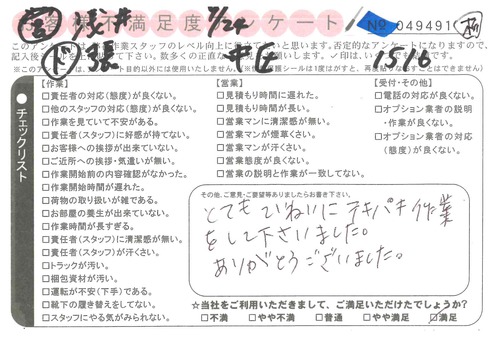 ㊞ 浅井 7/24
お客様不満足度アンケート! No 049491
このアンケートは、作業スタッフのレベル向上に役立てたいと思います。否定的なアンケートになりますので、
記入後 張 下さい。数多くの正直な お願いします。✓印は、
※このアンケートは、 目的以外には使用いたしません。 保護シールは1度はがすと、再度 ることはできません)
15:16
チェックリスト
【作業】
□責任者の対応(態度)が良くない。
□他のスタッフの対応(態度)が良くない。
□作業を見ていて不安がある。
□責任者(スタッフ)に好感が持てない。
□お客様への挨拶が出来ていない。
□ご近所への挨拶・気遣いが無い。
□作業開始前の内容確認がなかった。
□作業開始時間が遅れた。
□荷物の取り扱いが雑である。
□お部屋の養生が出来ていない。
□作業時間が長すぎる。
□責任者(スタッフ)に清潔感が無い。
□責任者(スタッフ)が汗くさい。
□トラックが汚い。
□梱包資材が汚い。
□運転が不安(下手)である。
□靴下の履き替えをしてない。
□スタッフにやる気がみられない。
【営業】
□見積もり時間に遅れた。
□見積もり時間が長い。
□営業マンに清潔感が無い。
□営業マンが煙草くさい。
□営業マンが汗くさい。
□営業態度が良くない。
□営業の説明と作業が一致してない。
【受付・その他】
□電話の対応が良くない。
□オプション業者の説明
・作業が良くない。
□オプション業者の対応
(態度)が良くない。
その他、ご意見・ご要望等ありましたらお書き下さい。
とてもていねいにテキパキ作業
をして下さいました。
ありがとうございました。
☆当社をご利用いただきまして、ご満足いただけたでしょうか?
□不満 □やや不満 □普通 □やや満足 ☑満足